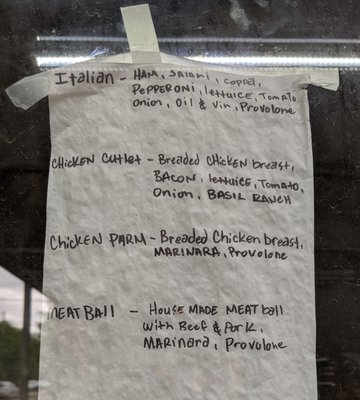 Italian - HAM, SALAMI, COPPA,
PEPPERONI, lettuice, Tomato,
Onion, Oil & Vin, Provolone
CHICKEN CUTLET - Breaded CHICKEN breast,
BACON, lettuice, Tomato,
Onion, BASIL RANCH
Chicken PARM - Breaded Chicken breast,
MARINARA, Provolone
MEATBALL - House MADE MEATball
with Beef & PORK,
MARINARA, Provolone